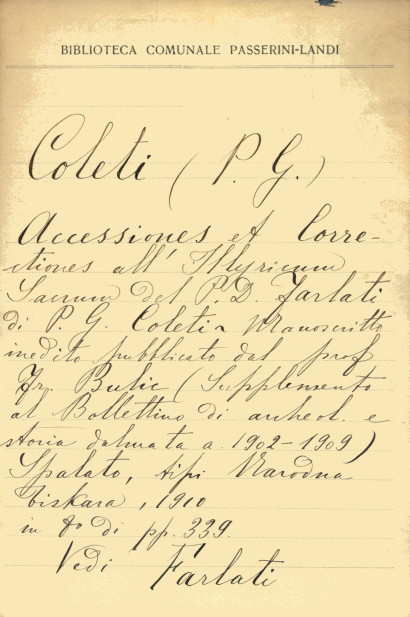 BIBLIOTECA COMUNALE PASSERINI-LANDI
Coleti (P. G.)
Accessiones et Corre-
ctiones all' Illyricum
Sacrum del P. D. Farlati
di P. G. Coleti - Manoscritto
inedito pubblicato dal prof
Fr. Bulic (Supplemento
al Bollettino di archeol. e
storia dalmata a. 1902-1909)
Spalato, tipi Narodna
tiskara, 1910
in 8º di pp. 339.
Vedi Farlati